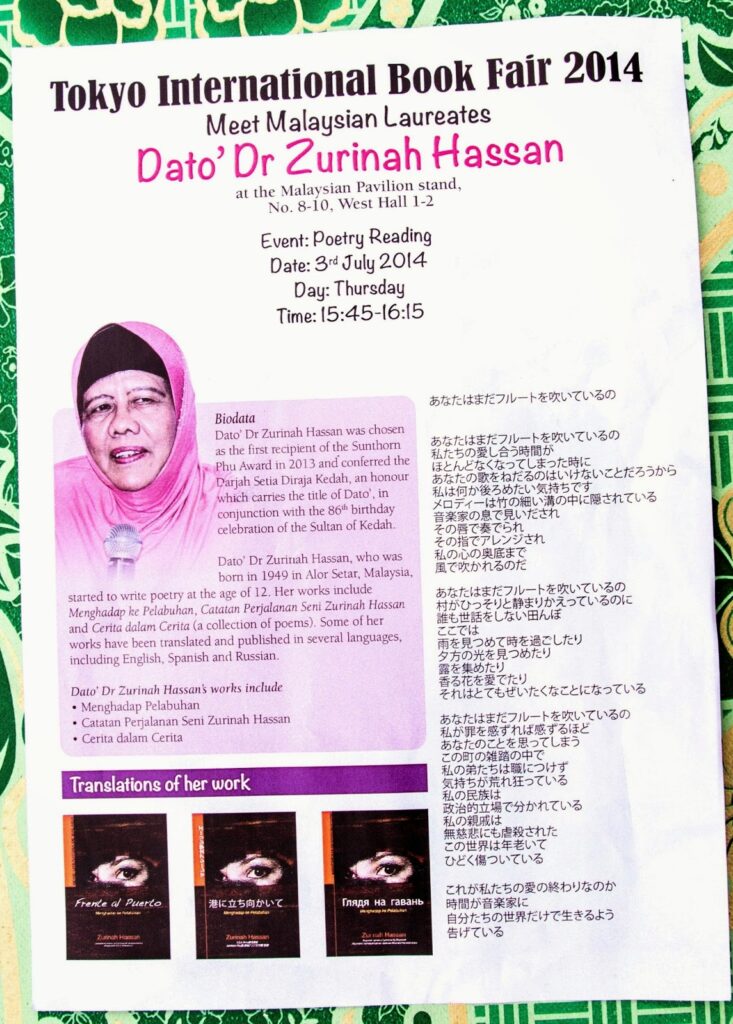 Tokyo International Book Fair 2014
Meet Malaysian Laureates
Dato' Dr Zurinah Hassan
at the Malaysian Pavilion stand,
No. 8-10, West Hall 1-2
Event: Poetry Reading
Date: 3rd July 2014
Day: Thursday
Time: 15:45-16:15
Biodata
Dato' Dr Zurinah Hassan was chosen
as the first recipient of the Sunthorn
Phu Award in 2013 and conferred the
Darjah Setia Diraja Kedah, an honour
which carries the title of Dato', in
conjunction with the 86th birthday
celebration of the Sultan of Kedah.
Dato' Dr Zurinah Hassan, who was
born in 1949 in Alor Setar, Malaysia,
started to write poetry at the age of 12. Her works include
Menghadap ke Pelabuhan, Catatan Perjalanan Seni Zurinah Hassan
and Cerita dalam Cerita (a collection of poems). Some of her
works have been translated and published in several languages,
including English, Spanish and Russian.
Dato' Dr Zurinah Hassan's works include
• Menghadap Pelabuhan
• Catatan Perjalanan Seni Zurinah Hassan
• Cerita dalam Cerita
Translations of her work
Frente al Puerto
Menghadap ke Pelabuhan
Zurinah Hassan
港に立ち向かいて
Menghadap ke Pelabuhan
Zurinah Hassan
Глядя на гавань
Menghadap ke Pelabuhan
Zurinah Hassan
あなたはまだフルートを吹いているの
あなたはまだフルートを吹いているの
私たちの愛し合う時間が
ほとんどなくなってしまった時に
あなたの歌をねだるのはいけないことだろうから
私は何か後ろめたい気持ちです
メロディーは竹の細い溝の中に隠されている
音楽家の息で見いだされ
その唇で奏でられ
その指でアレンジされ
私の心の奥底まで
風で吹かれるのだ
あなたはまだフルートを吹いているの
村がひっそりと静まりかえっているのに
誰も世話をしない田んぼ
ここでは
雨を見つめて時を過ごしたり
夕方の光を見つめたり
露を集めたり
香る花を愛でたり
それはとてもぜいたくなことになっている
あなたはまだフルートを吹いているの
私が罪を感ずれば感ずるほど
あなたのことを思ってしまう
この町の雑踏の中で
私の弟たちは職につけず
気持ちが荒れ狂っている
私の民族は
政治的立場で分かれている
私の親戚は
無慈悲にも虐殺された
この世界は年老いて
ひどく傷ついている
これが私たちの愛の終わりなのか
時間が音楽家に
自分たちの世界だけで生きるよう
告げている